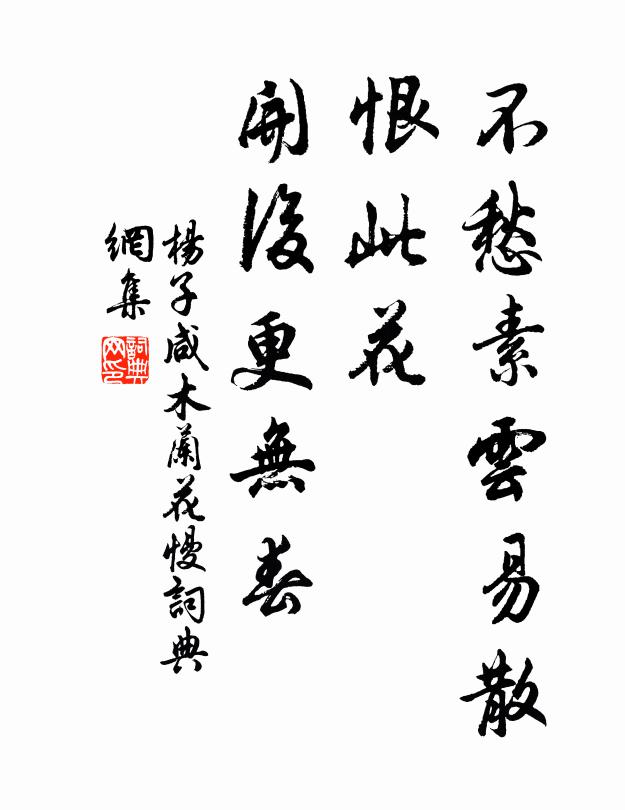 不愁素雲易散
恨此花
開後更無春
楊子咸木蘭花慢詞典
網集
詞典
网印